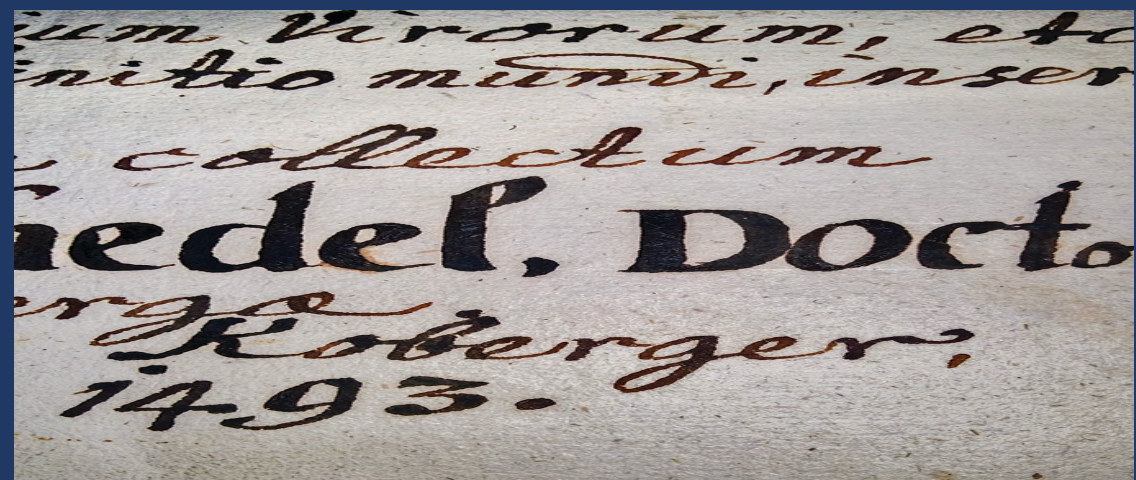 ium Virorum, etc
initio mundi, inser
collectum
hedel, Doct.
ergo
Koberger,
1493.